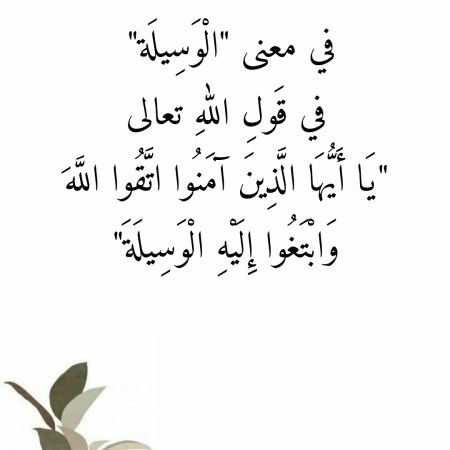 في معنى "الْوَسِيلَة"
في قَولِ اللهِ تعالى
"يَا أَيُّهَا الَّذِينَ آمَنُوا اتَّقُوا اللَّهَ
وَابْتَغُوا إِلَيْهِ الْوَسِيلَةَ"